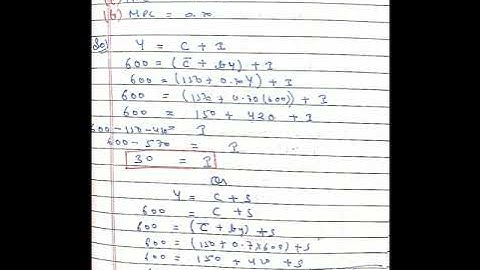 (b) MPC = 0.70
Sol Y = C + I
600 = (C̅ + by) + I
600 = (150 + 0.70Y) + I
600 = (150 + 0.70(600)) + I
600 = 150 + 420 + I
600-150-420 = I
600-570 = I
30 = I
Or
Y = C + S
600 = C + S
600 = (C̅ + by) + S
600 = (150 + 0.7×600) + S
600 = 150 + 420 + S